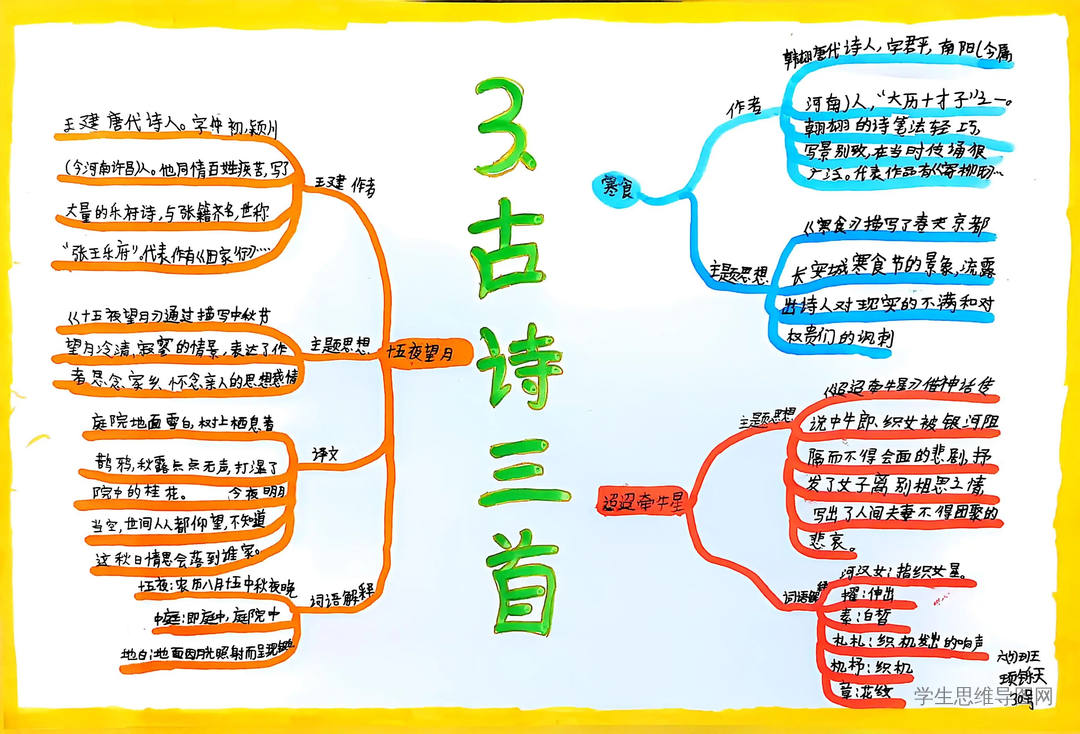 3、古诗三首
十五夜望月
王建 作者
王建唐代诗人。字仲初,颍川
(今河南许昌)人。他同情百姓疾苦,写了
大量的乐府诗,与张籍齐名,世称
“张王乐府”。代表作有《田家行》…
主题思想
《十五夜望月》通过描写中秋节
望月冷清,寂寥的情景,表达了作
者思念家乡、怀念亲人的思想感情
译文
庭院地面雪白,树上栖息着
鹊鸦,秋露点点无声,打湿了
院中的桂花。 今夜明月
当空,世间人人都仰望,不知道
这秋日情思会落到谁家。
词语解释
十五夜:农历八月十五中秋夜晚
中庭:即庭中,庭院中
地白:地面因月光照射而呈现
寒食
作者
韩翃唐代诗人,字君平,南阳(今属
河南)人,“大历十才子”之一。
韩翃的诗笔法轻巧,
写景别致,在当时传诵很
广泛。代表作品有《寄柳氏》…
主题思想
《寒食》描写了春天京都
长安城寒食节的景象,流露
出诗人对现实的不满和对
权贵们的讽刺
迢迢牵牛星
主题思想
《迢迢牵牛星》借神话传
说中牛郎、织女被银河阻
隔而不得会面的悲剧,抒
发了女子离别相思之情,
写出了人间夫妻不得团聚的
悲哀。
词语解释
河汉女:指织女星。
擢:伸出
素:白皙
札札:织机发出的响声
机杼:织机
章:花纹
六(1)班
30号
学生思维导图网